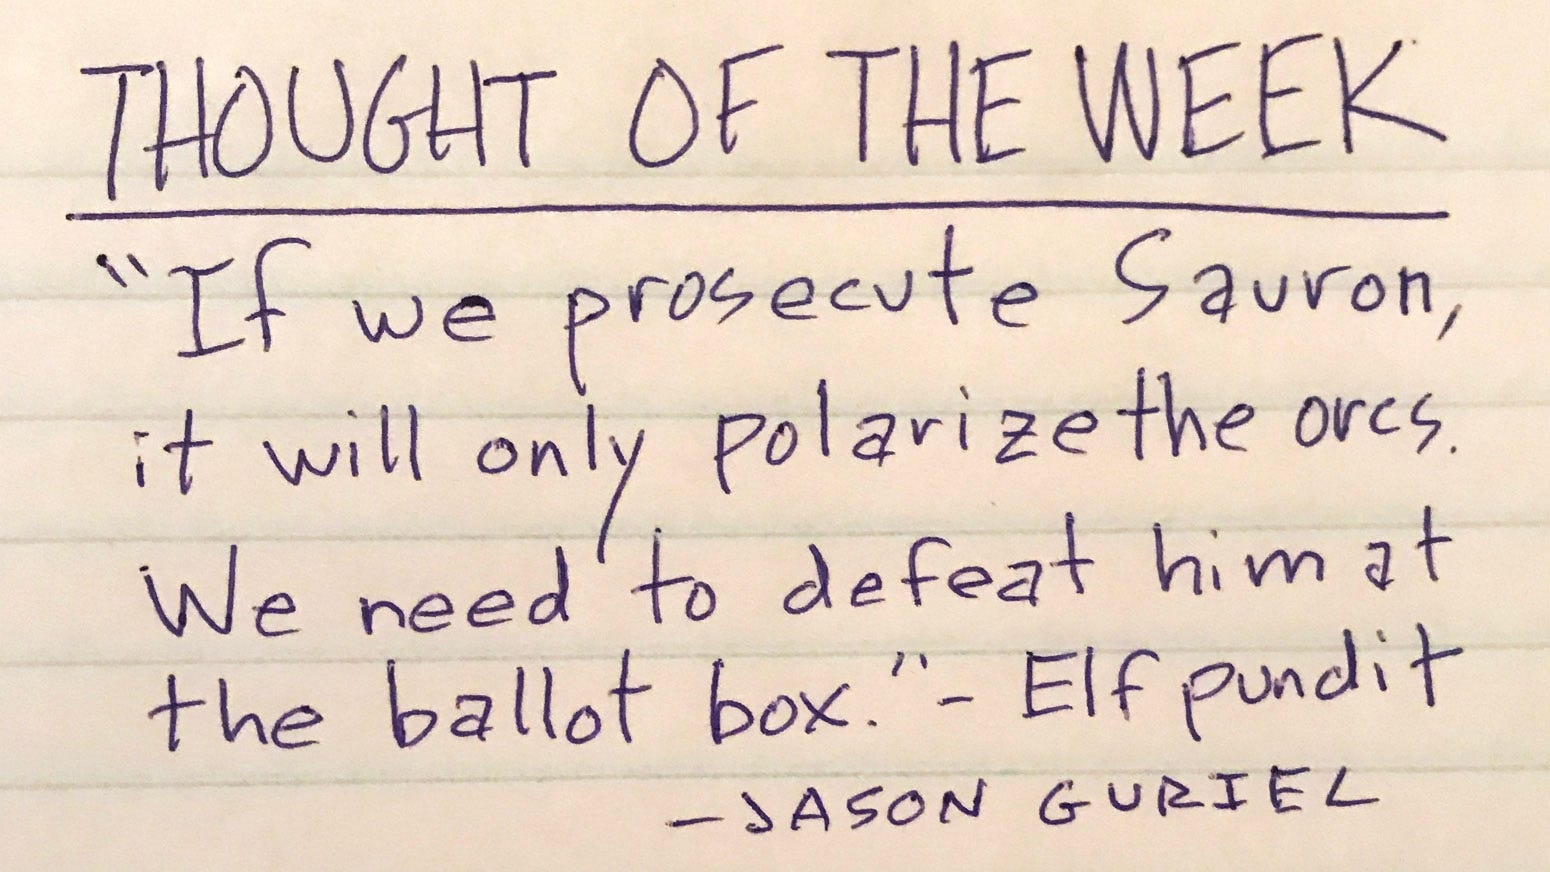 THOUGHT OF THE WEEK
"If we prosecute Sauron,
it will only polarize the orcs.
We need to defeat him at
the ballot box." - Elf pundit
- JASON GURIEL